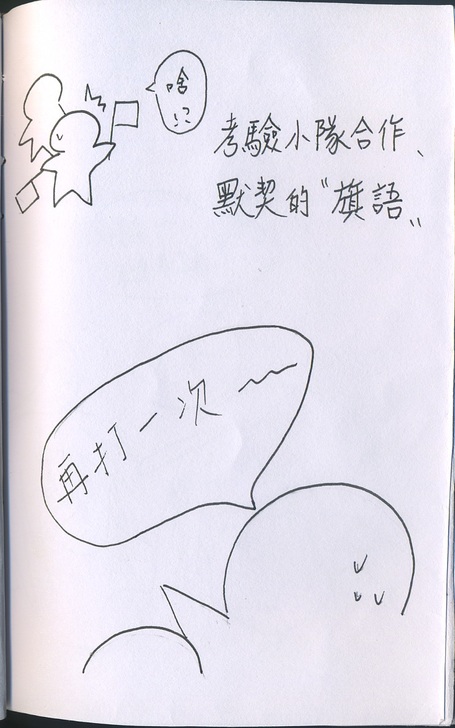 啥
考驗小隊合作、
默契的"旗語"
再打一次～